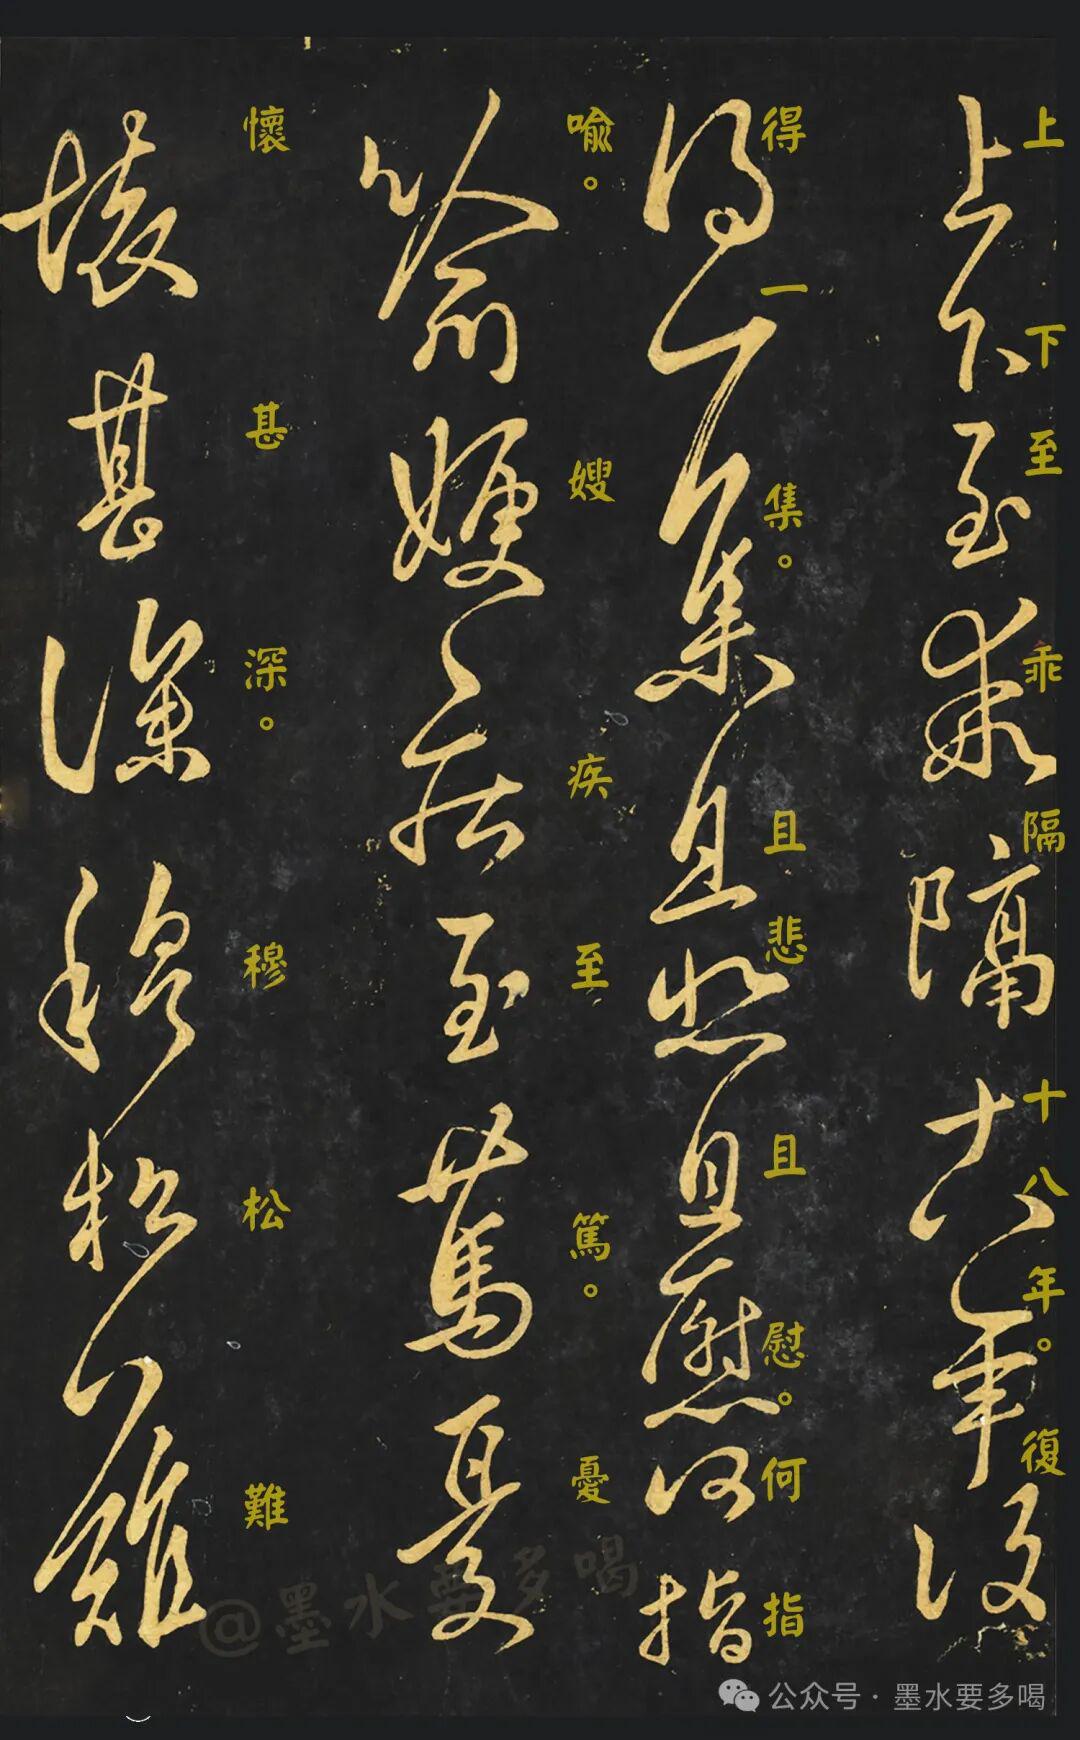 上下至乖隔十八年。復
得一集。且悲且慰。何指
喻。嫂疾至篤。憂
懷甚深。穆松難
@墨水要多喝
公众号·墨水要多喝